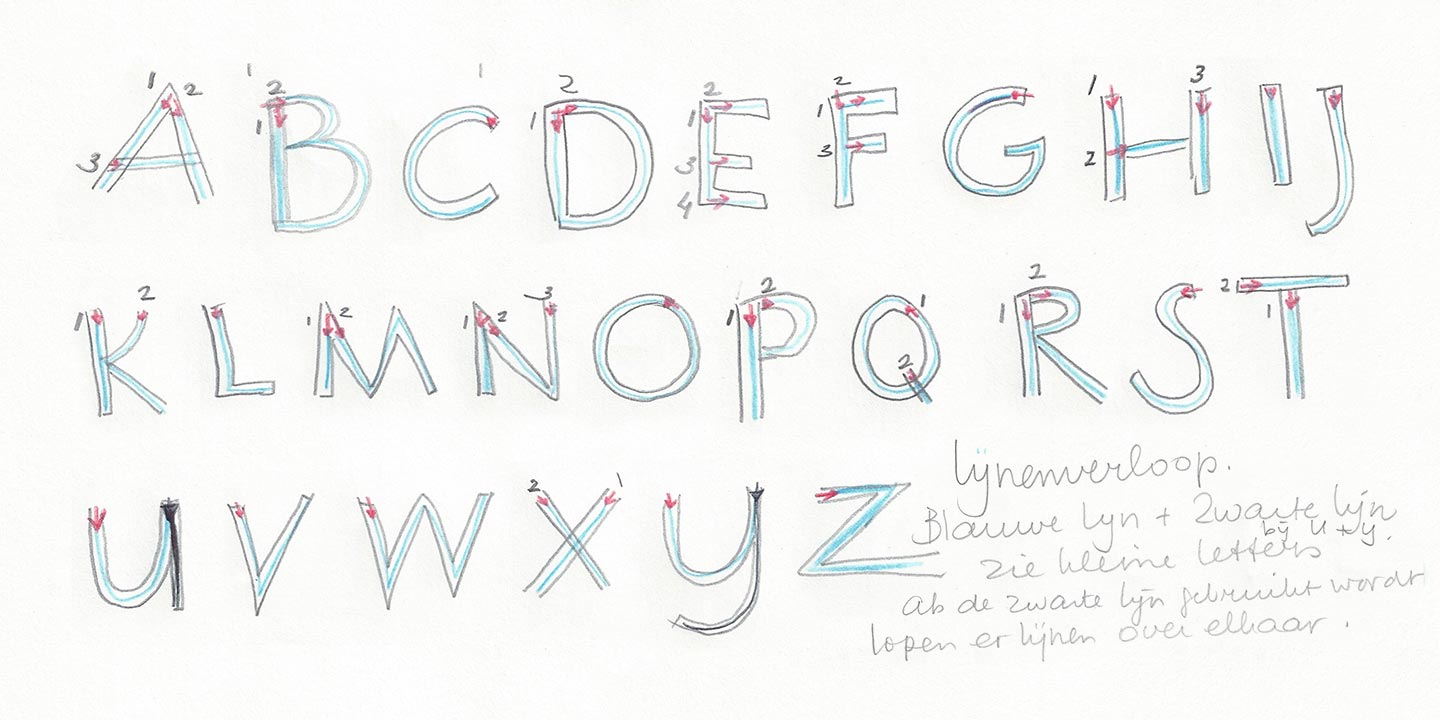 1 2 1 2 1 2 2 2 1 3
A B C D E F G H I J
3 1 1 1 1 2
3 3
4
2 2 3 2 1 2 2
K L M N O P Q R S T
1 1 2 1 2 1 2 1 1
2 1
U V W X Y Z
lijnenverloop.
Blauwe lijn + Zwarte lijn
bij U + y.
zie kleine letters
Als de zwarte lijn gebruikt wordt
lopen er lijnen over elkaar.